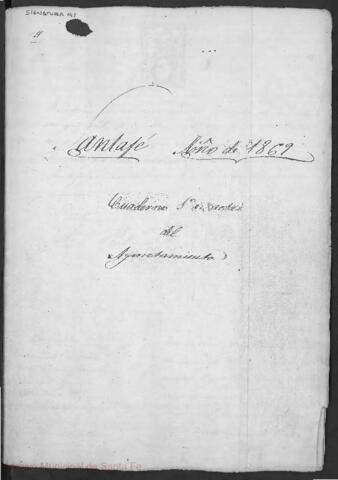 SIGNATURA 141
Santafé Año de 1869
Cuaderno 1º de actas
del
Ayuntamiento
Archivo Municipal de Santa Fe